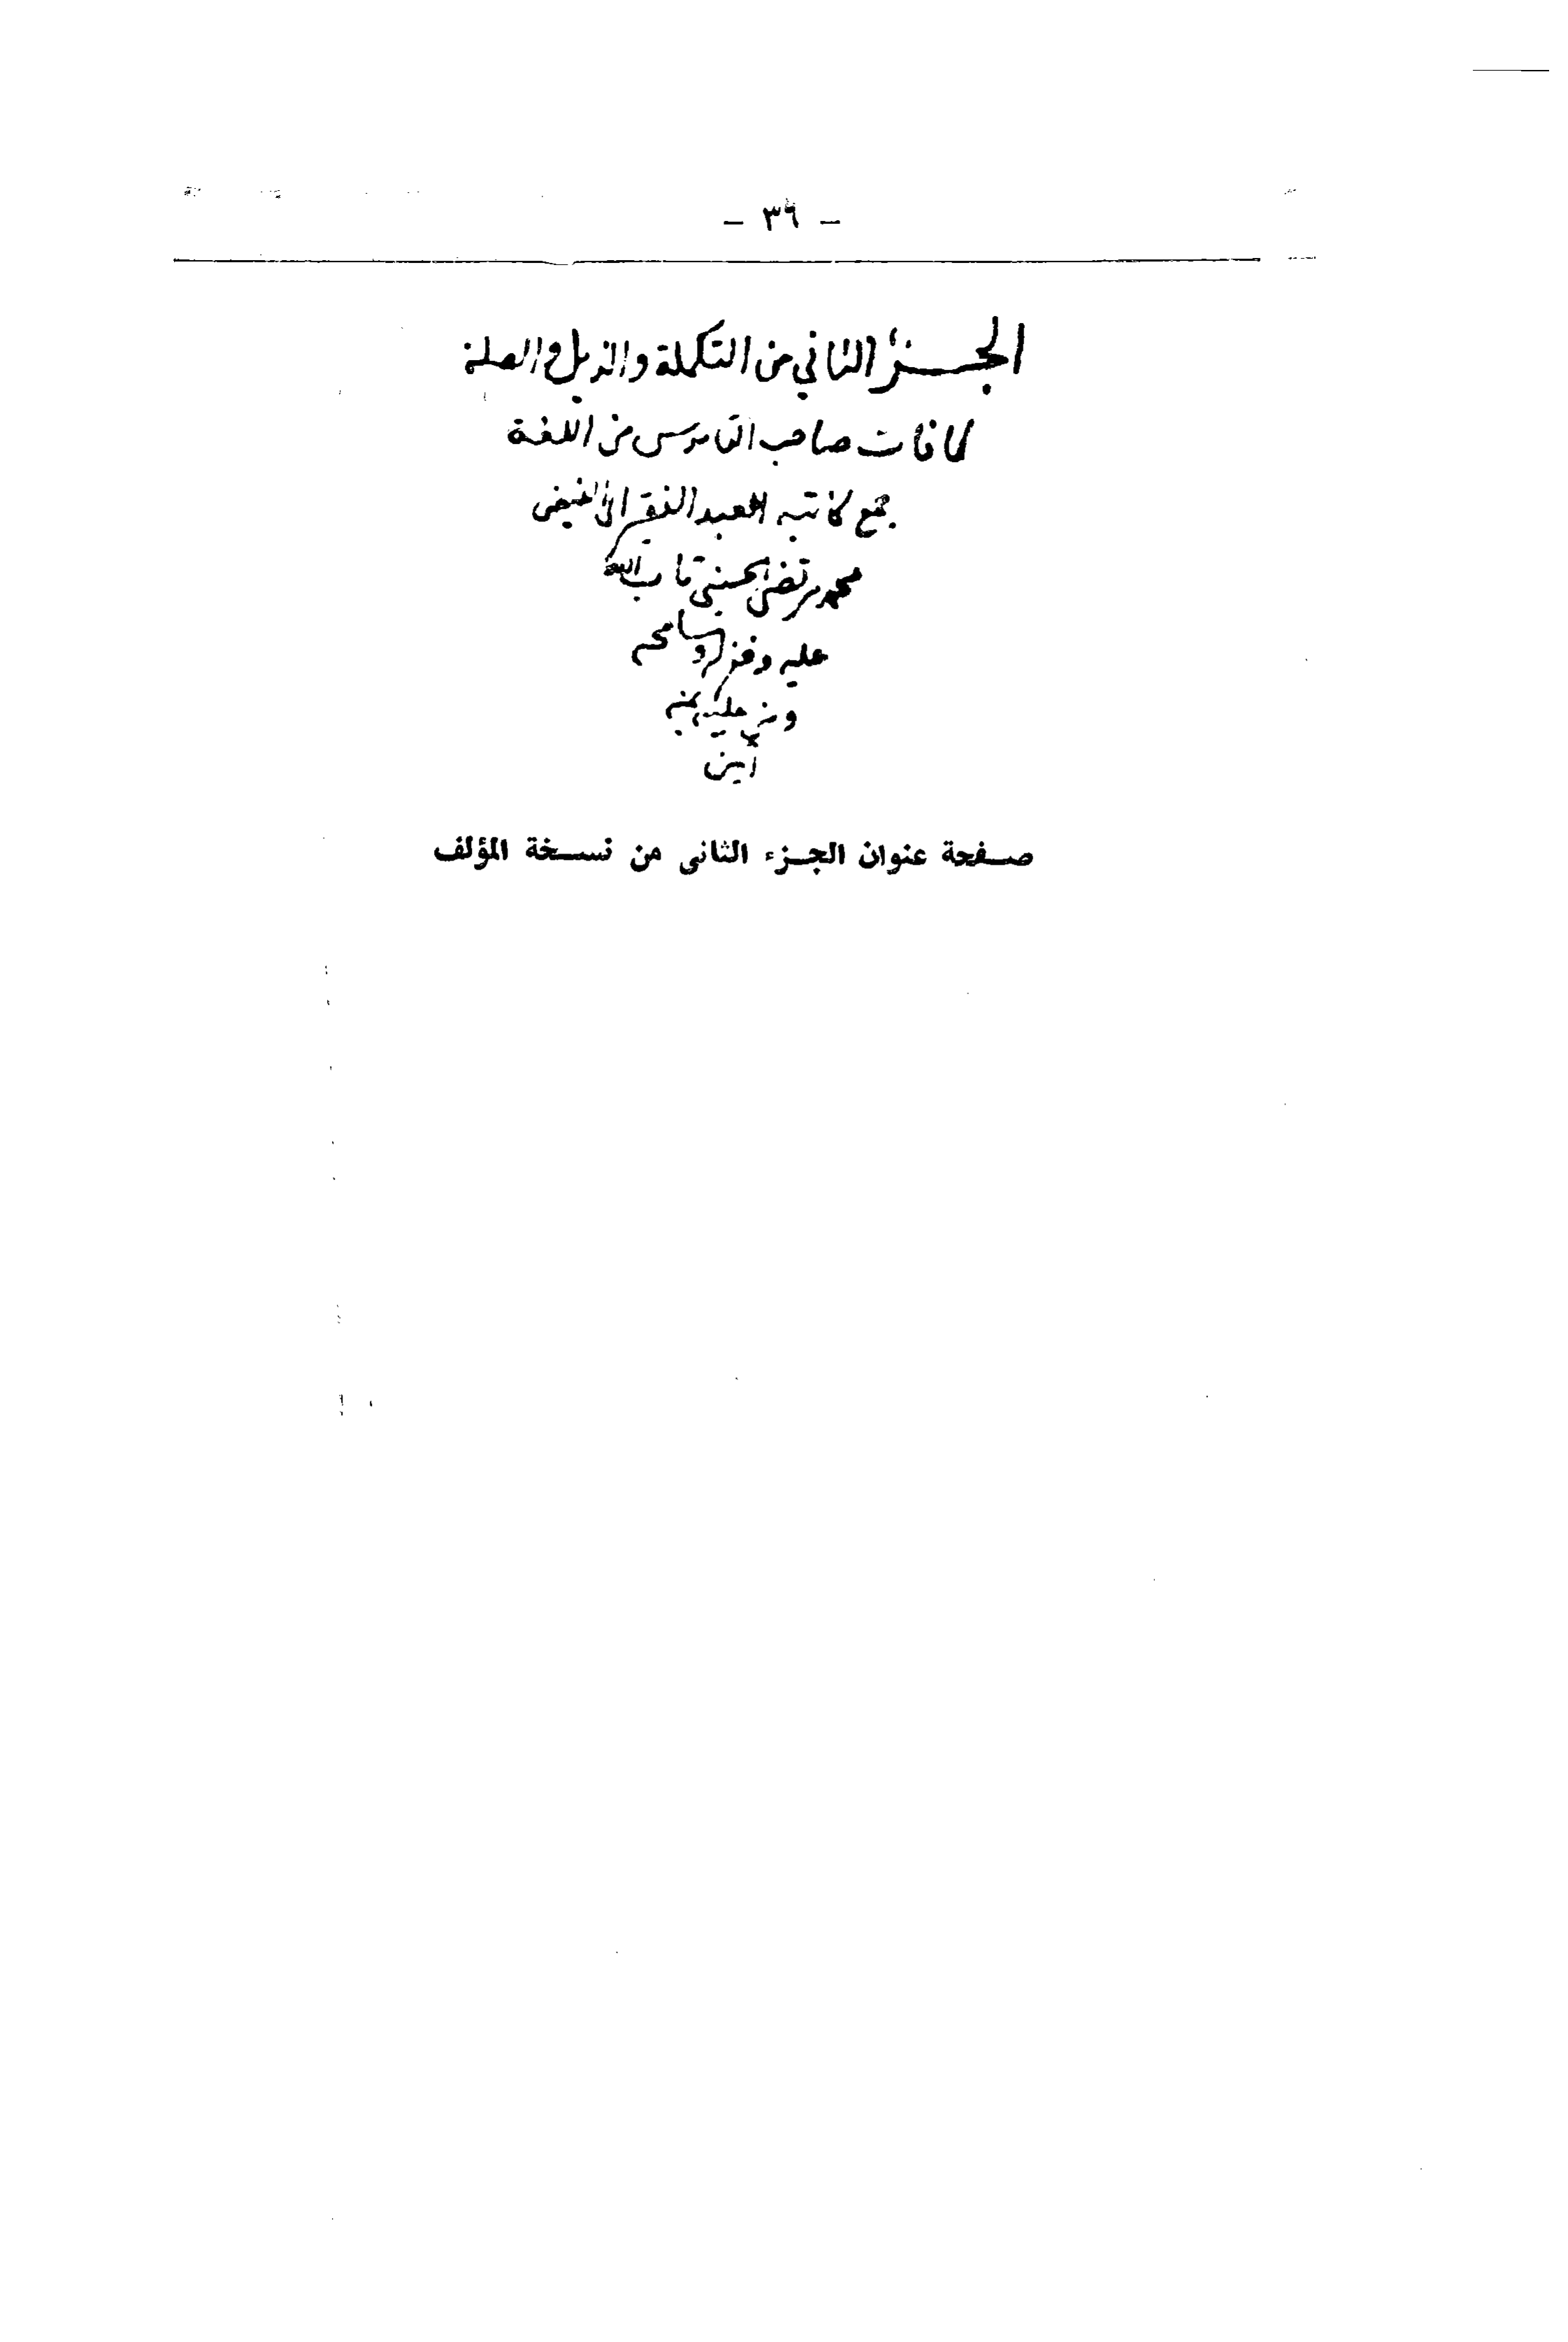 - ٣٦ -
الجزء الثاني من التكملة والذيل والصلة
لما فات صاحب القاموس من اللغة
جمع كاتبه العبد الفقير الى الله الغني
محمد مرتضى الحسيني تاب الله
عليه وغفر له وسامحه
ومن عليه بمنه
آمين
صفحة عنوان الجزء الثانى من نسخة المؤلف